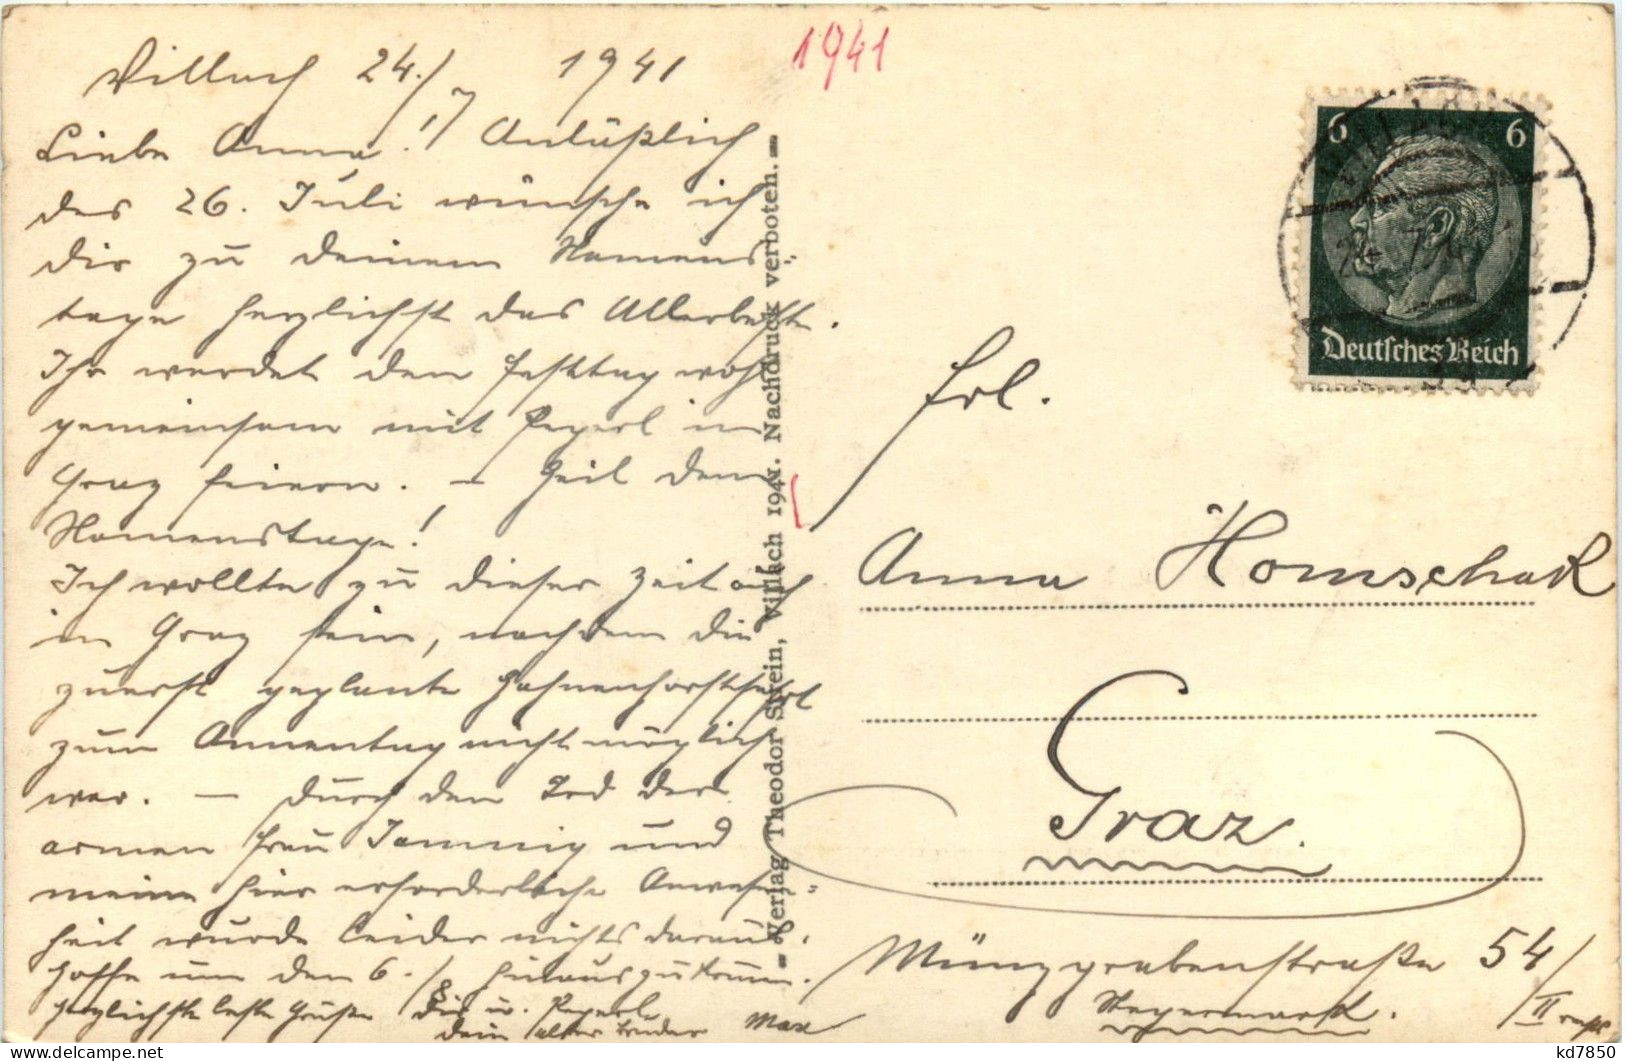 Villach 24./7 1941
1941
Liebe Anna! Anläßlich
des 26. Juli wünsche ich
dir zu deinem Namens-
tage herzlichst das Allerbeste.
Ihr werdet den Festtag wohl
gemeinsam mit Peperl in
Graz feiern. – Heil dem
Namenstage!
Ich wollte zu dieser Zeit auch
in Graz sein, nachdem die
zuerst geplante
zum Annentag nicht möglich
war. – Durch den Tod der
armen Frau und
meine hier erforderliche Anwesen=
heit wurde leider nichts daraus.
Hoffe um den 6./8 hinauszukommen.
Herzlichste beste Grüße Dir u. Peperl
dein alter Bruder Max
Verlag Theodor Strein, Villach 1941. Nachdruck verboten.
6 6
Deutsches Reich
VILLACH
24. 7.
Frl.
Anna Homschak
Graz.
Münzgrabenstraße 54/
II rechts
Steyermark.
kd7850